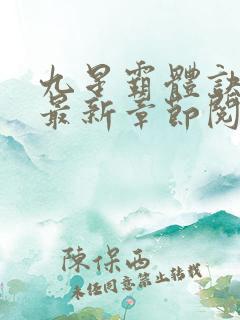 九星霸體訣
最新章節閱
陳保西
未经同意禁止转载